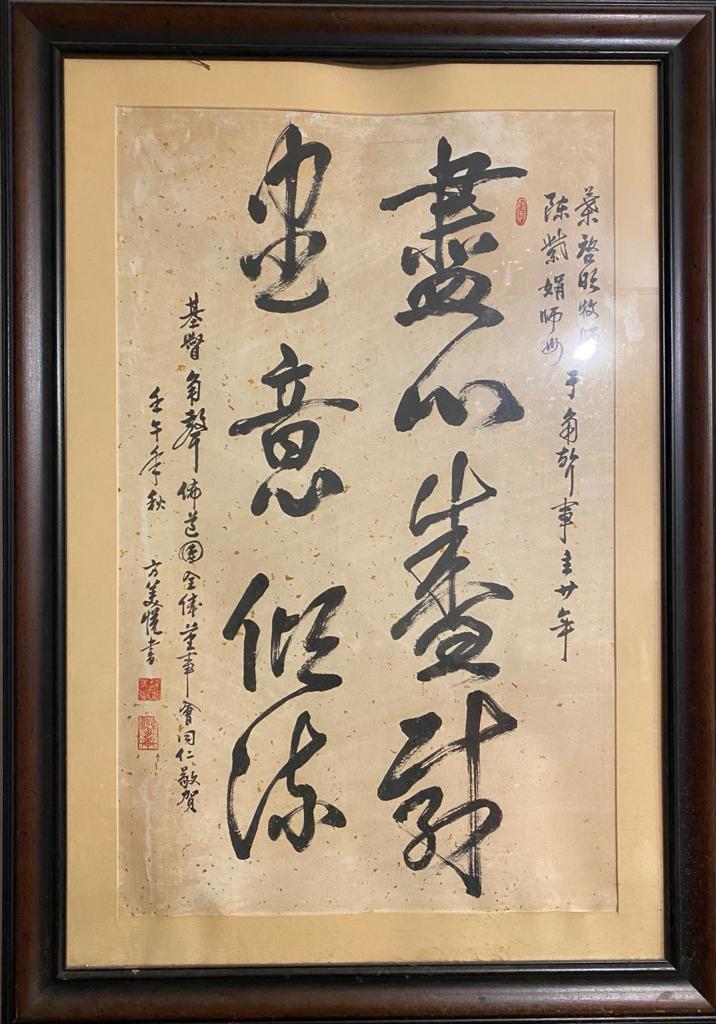 葉啓明牧師
陳紫娟師母
于角聲事主廿年
盡心
意流
基督角聲佈道團全体董事會同仁敬賀
壬午年秋 方美悅書